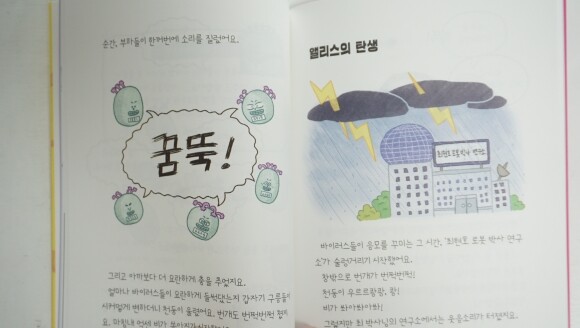 순간, 부하들이 한꺼번에 소리를 질렀어요.
꿈뚝!
그리고 아까보다 더 요란하게 춤을 추었지요.
얼마나 바이러스들이 요란하게 들썩댔는지 갑자기 구름들이
시커멓게 변하더니 천둥이 울렸어요. 번개도 번쩍번쩍 쳤지
앨리스의 탄생
바이러스들이 음모를 꾸미는 그 시간, '최현호 로봇 박사 연구
소'가 술렁거리기 시작했어요.
창밖으로 번개가 번쩍번쩍!
천둥이 우르르쾅쾅, 쾅!
비가 쏴아쏴아!
그렇지만 최 박사님의 연구소에서는 웃음소리가 터졌지요.